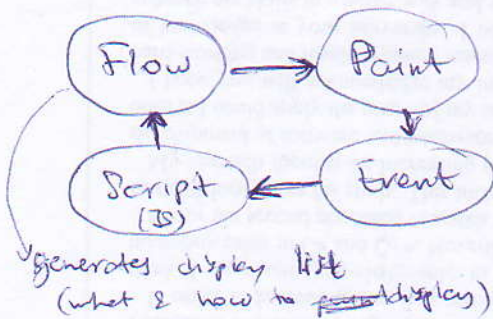 Flow
Paint
Script
(JS)
Event
generates display list
(what & how to display)